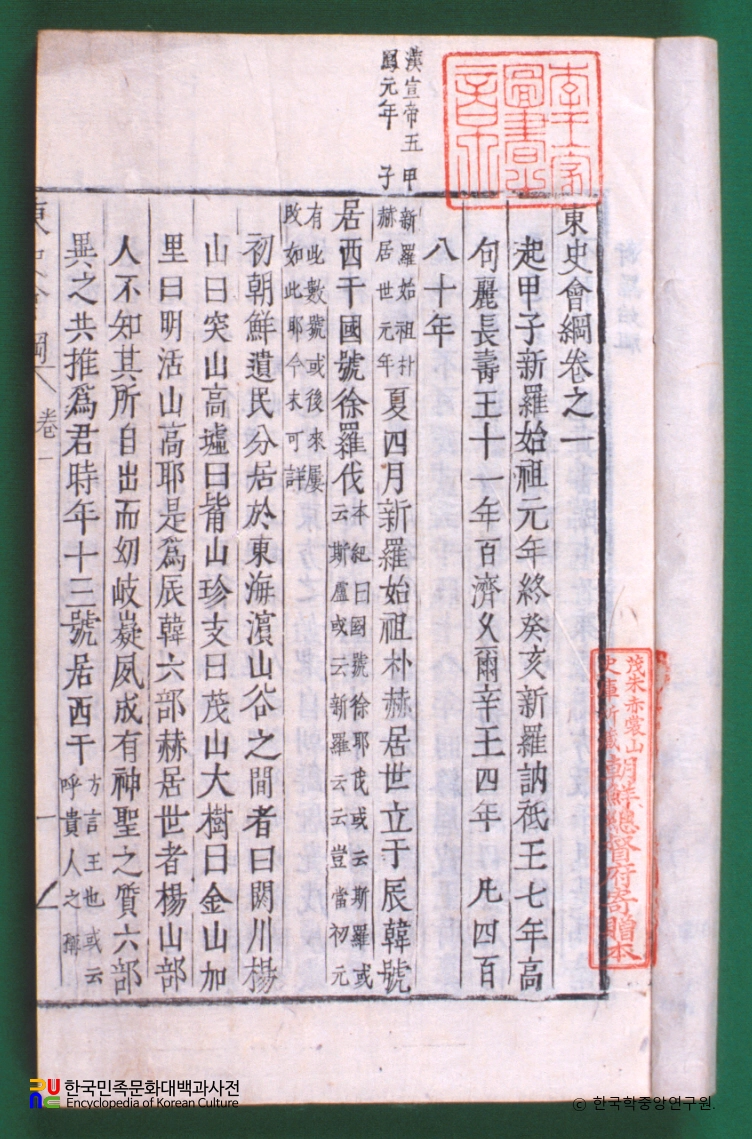 李王家
圖書之
章
漢宣帝五
鳳元年
甲
子
東史會綱卷之一
起甲子新羅始祖元年終癸亥新羅訥祗王七年高
句麗長壽王十一年百濟久爾辛王四年 凡四百
八十年
新羅始祖朴
赫居世元年
夏四月新羅始祖朴赫居世立于辰韓號
居西干國號徐羅伐
本紀曰國號徐耶伐或云斯羅或
云斯盧或云新羅云云豈當初元
有此數號或後來屢
改如此耶今未可詳
初朝鮮遺民分居於東海濱山谷之間者曰閼川楊
山曰突山高墟曰觜山珍支曰茂山大樹曰金山加
里曰明活山高耶是爲辰韓六部赫居世者楊山部
人不知其所自出而幼岐嶷夙成有神聖之質六部
異之共推爲君時年十三號居西干
方言王也或云
呼貴人之稱
東史會綱 卷一
一
茂朱赤裳山
史庫所藏
朝鮮總督府寄贈本
한국민족문화대백과사전
Encyclopedia of Korean Culture
© 한국학중앙연구원.